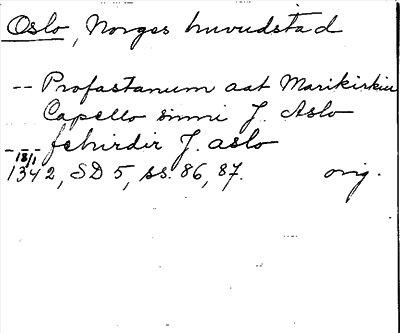 Oslo, Norges huvudstad
-- Profastanum aat Marikirkiu
Capello sinni J. Aslo
---- fehirdir J. aslo
18/1
1342, SD 5, ss. 86, 87. orig.